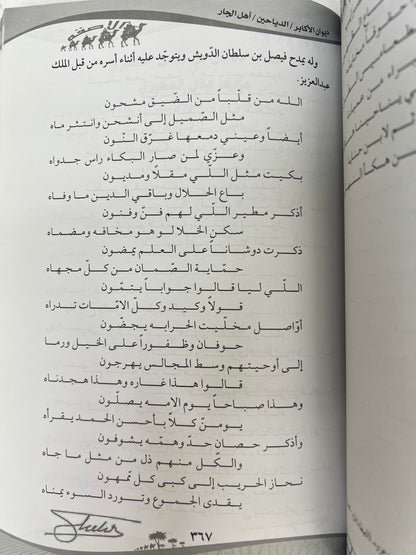 ديوان الأكابر/الدياحين/أهل الجار
وله يمدح فيصل بن سلطان الدّويش ويتوجّد عليه أثناء أسره من قبل الملك
عبدالعزيز.
الله من قلبـاً من الضّيق مشحون
مثل الصّميل إلى أنشحن وانتثر ماه
أيضاً وعيني دمعها غرّق النّون
وعزّي لمن صار البكاء راس جدواه
بكيت مثل اللي مقلاً ومديون
باع الحلال وباقي الدين ما وفاه
أذكر مطير اللّي لهم فنّ وفنون
سكن الخلا لو هو مخافه ومضماه
ذكرت دوشاناً على العلم يمضون
حمّاية الصّمان من كلّ مجهاه
اللّي ليا قالوا جواباً يتمّون
قولاً وكيد وكلّ الامّات تدراه
أوّاصل مخلّيت الحرابه يجضّون
حوفان وظفوراً على الخيل ورماه
إلى أوحيتهم وسط المجالس يهرجون
قالوا هذا غاره وهذا هجدناه
وهذا صباحاً يوم الامه يصلّون
يومنّ كلاً بأحسن الحمد يقرأه
وأذكر حصان حدّ وهمّه يشوفون
والكّل منهم ذل من مثل ما جاه
نحاز الحريب إلى كبى كل تمهون
يقدى الجموع وتورد السوء يمناه
٣٦٧